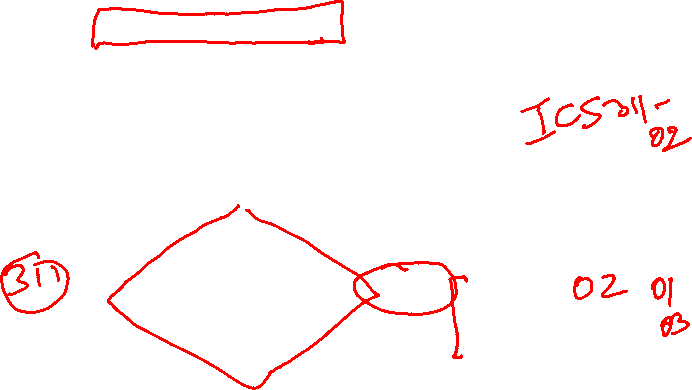 ICS 311-
02
311
02 01
03